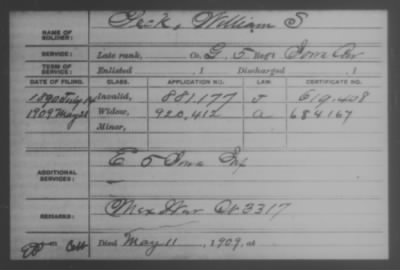 NAME OF SOLDIER: Peck, William S
SERVICE: Late rank, Co. G, 5 Reg't Iowa Cav
TERM OF SERVICE: Enlisted , 1 Discharged , 1
DATE OF FILING. CLASS. APPLICATION NO. LAW. CERTIFICATE NO.
1890 July 14 Invalid, 881.177 J 619.408
1909 May 21 Widow, 920,412 a 684167
Minor,
ADDITIONAL SERVICES: E 5 Iowa Inf
REMARKS: Mex War Ctf. 3317
Died May 11, 1909, at